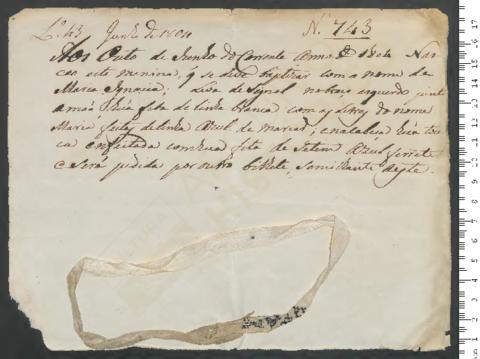 Lo 43 Junho de 1804 N. 743
Aos Outo de Junho do Corrente Anno de 1804 Nas
ceo esta menina, q se deve baptizar com o nome de
Maria Ignacia; Leva de Signal no braço esquerdo junto
a mão huã fita de linha branca com as letras do nome
Maria feitas de linha Azul de marcar; e na cabeça huã tou
ca enfeitada com huã fita de Setim Azul ferrete
e será pedida por outro bilhete, similhante a este.